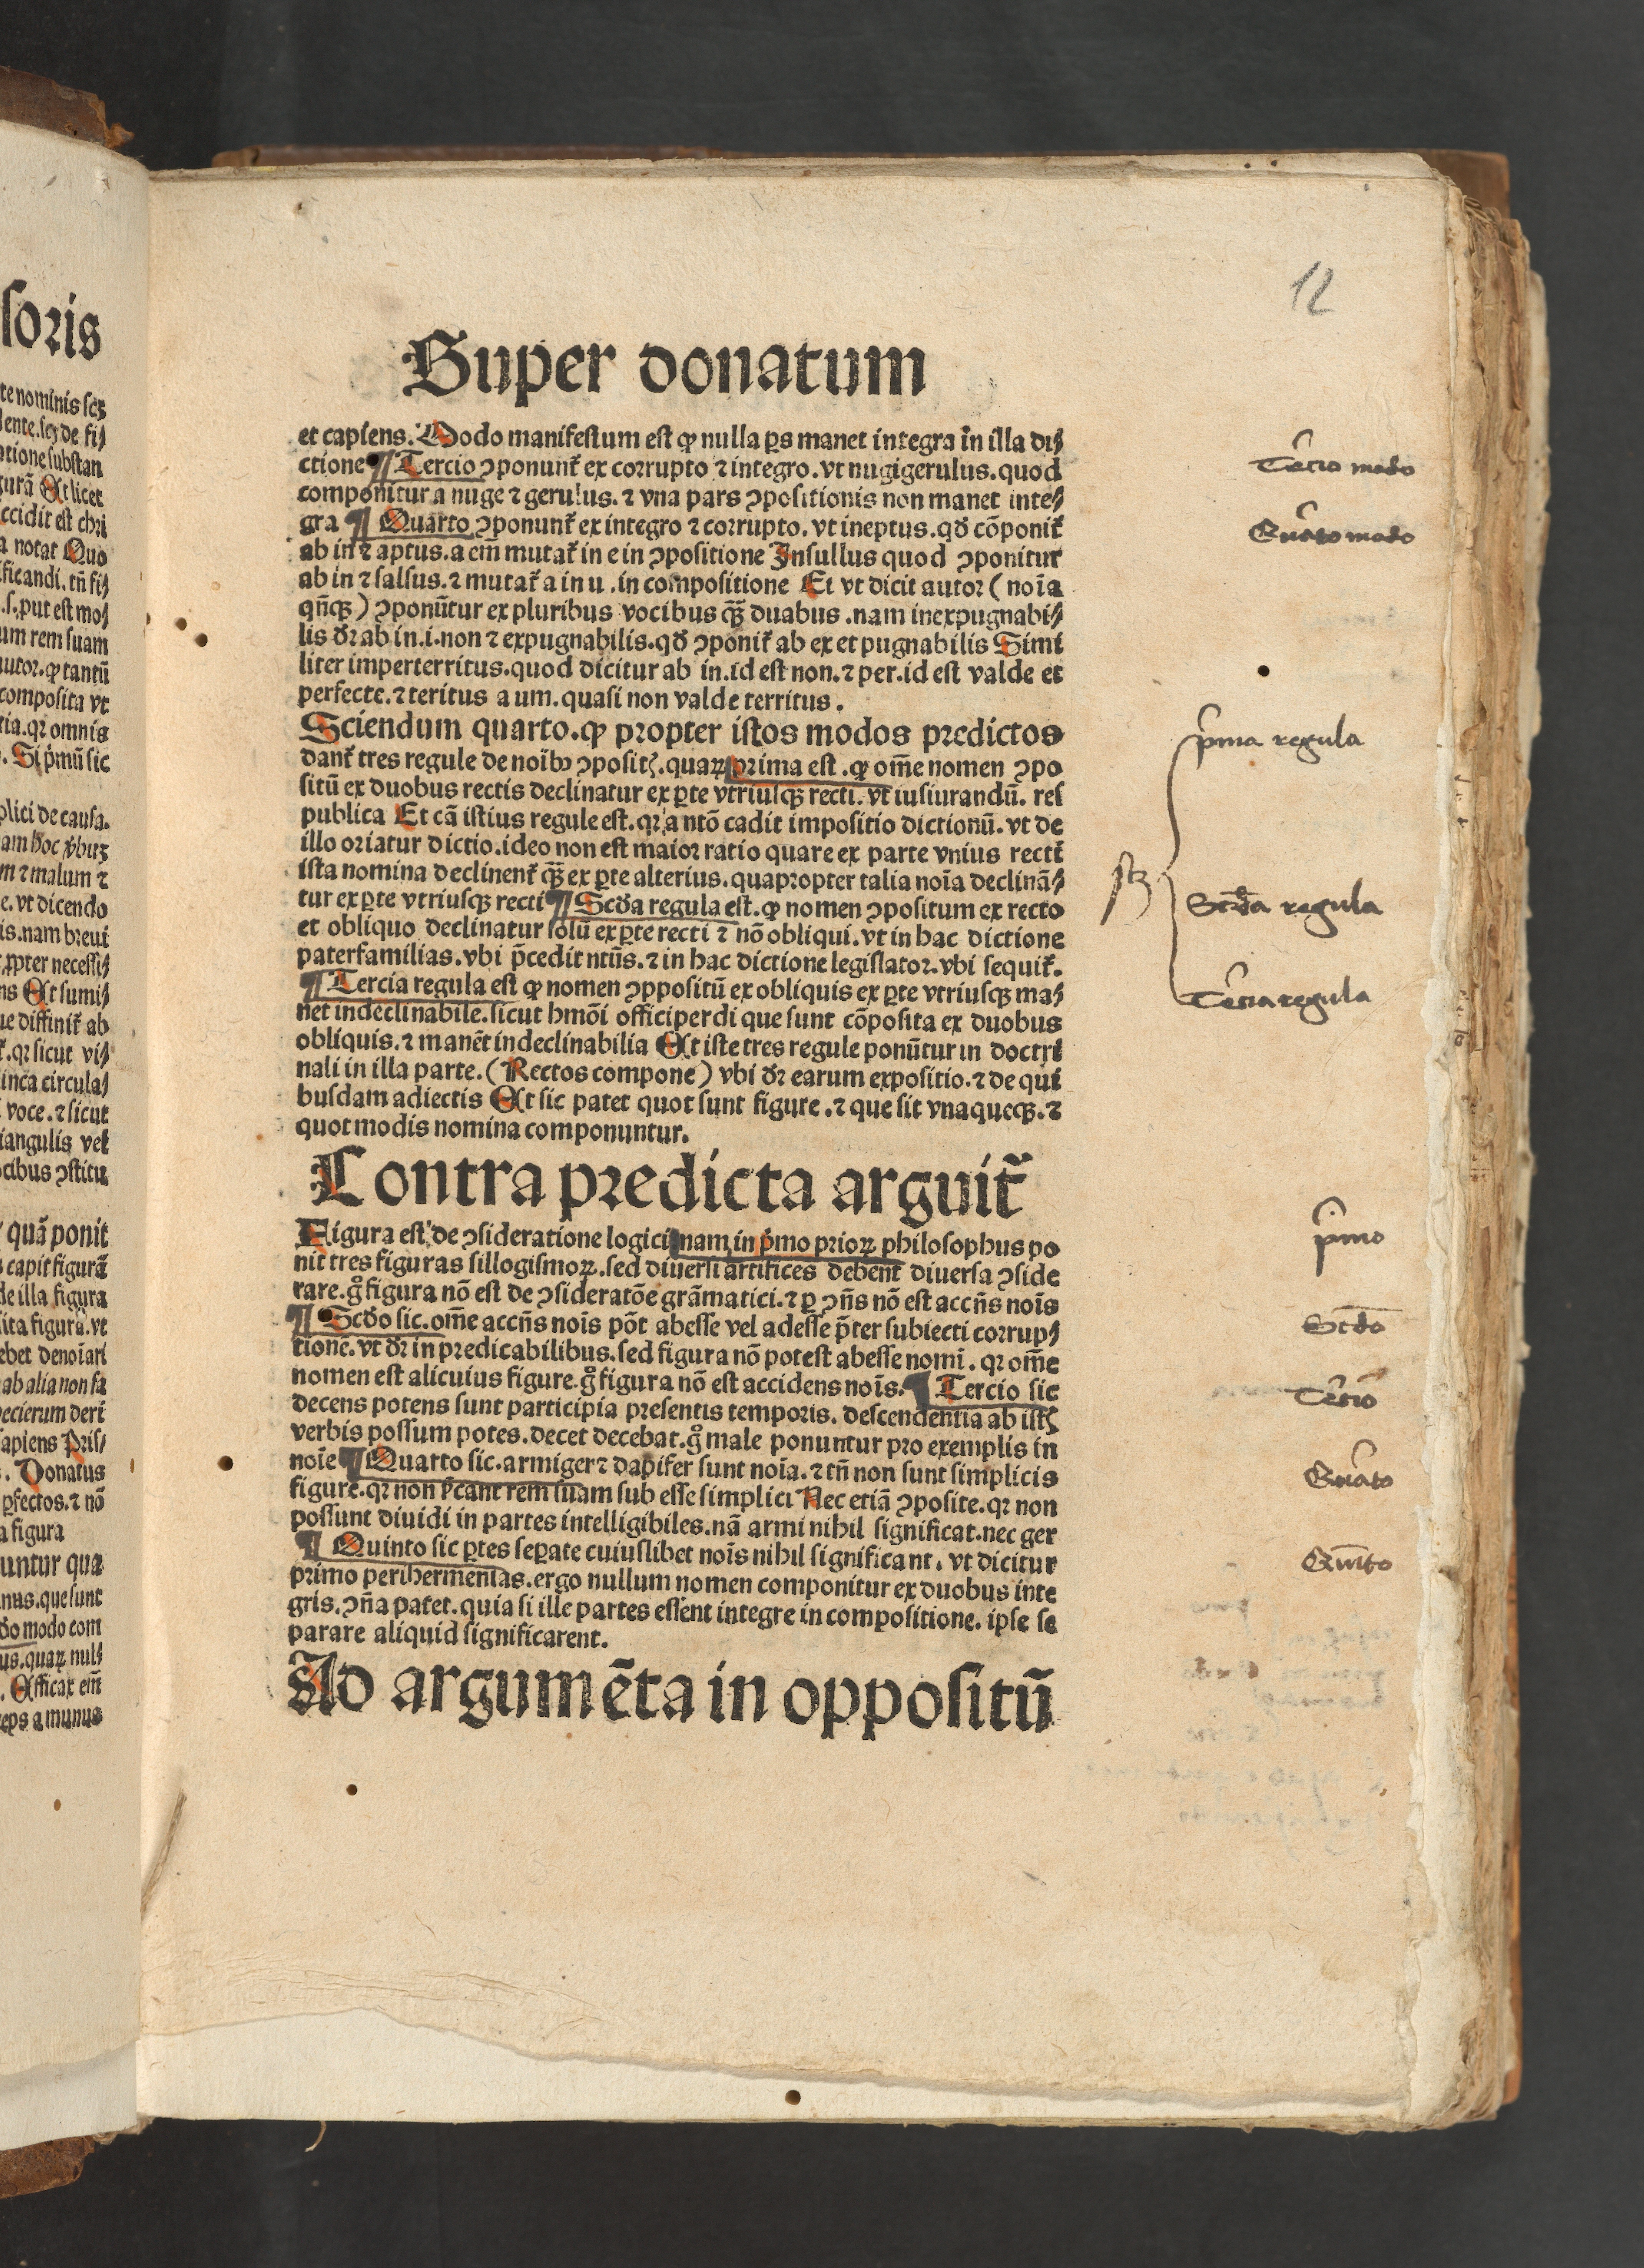 12
Super donatum
et capiens. Modo manifestum est ꝙ nulla ꝑs manet integra in illa di⸗
ctione ¶ Tercio ↄponunt᷑ ex corrupto ⁊ integro. vt nugigerulus. quod
componitur a nuge ⁊ gerulus. ⁊ vna pars ↄpositionis non manet inte⸗
gra ¶ Quarto ↄponunt᷑ ex integro ⁊ corrupto. vt ineptus. qđ cōponit᷑
ab in ⁊ aptus. a em̄ mutat᷑ in e in ↄpositione Insullus quod ↄponitur
ab in ⁊ salsus. ⁊ mutat᷑ a in u. in compositione Et vt dicit autor (noīa
qn̄qꝫ) ↄponūtur ex pluribus vocibus qꝫ̄ duabus. nam inexpugnabi⸗
lis dr̄ ab in. i. non ⁊ expugnabilis. qđ ↄponit᷑ ab ex et pugnabilis Simi
liter imperterritus. quod dicitur ab in. id est non. ⁊ per. id est valde et
perfecte. ⁊ teritus a um. quasi non valde territus.
Sciendum quarto. ꝙ propter istos modos predictos
dant᷑ tres regule de noībꝫ ↄposit̕. quaꝝ prima est. ꝙ om̄e nomen ↄpo
situ ex duobus rectis declinatur ex ꝑte vtriusqꝫ recti. vt iusiurandū. res
publica Et cā istius regule est. qꝛ a ntō cadit impositio dictionū. vt de
illo oriatur dictio. ideo non est maior ratio quare ex parte vnius recti
ista nomina declinent᷑ qꝫ̄ ex ꝑte alterius. quapropter talia noīa declinā⸗
tur ex ꝑte vtriusqꝫ recti ¶ Scđa regula est. ꝙ nomen ↄpositum ex recto
et obliquo declinatur solū ex ꝑte recti ⁊ nō obliqui. vt in hac dictione
paterfamilias. vbi p̄cedit ntūs. ⁊ in hac dictione legislator. vbi sequit᷑.
¶ Tercia regula est ꝙ nomen ↄppositū ex obliquis ex ꝑte vtriusqꝫ ma⸗
net indeclinabile. sicut hmōi officiperdi que sunt cōposita ex duobus
obliquis. ⁊ manēt indeclinabilia Et iste tres regule ponūtur in doctri
nali in illa parte. (Rectos compone) vbi dr̄ earum expositio. ⁊ de qui
busdam adiectis Et sic patet quot sunt figure. ⁊ que sit vnaqueqꝫ. ⁊
quot modis nomina componuntur.
Contra predicta arguit᷑
Figura est de ↄsideratione logici nam in pͥmo prioꝝ philosophus po
nit tres figuras sillogismoꝝ. sed diuersi artifices debent diuersa ↄside
rare. gͦ figura nō est de ↄsideratōe grāmatici. ⁊ ꝑ ↄn̄s nō est accn̄s noīs
¶ Scđo sic. om̄e accn̄s noīs pōt abesse vel adesse p̄ter subiecti corrup⸗
tionē. vt dr̄ in predicabilibus. sed figura nō potest abesse nomī. qꝛ om̄e
nomen est alicuius figure. gͦ figura nō est accidens noīs. ¶ Tercio sic
decens potens sunt participia presentis temporis. descendentia ab ist̕
verbis possum potes. decet decebat. gͦ male ponuntur pro exemplis in
noīe ¶ Quarto sic. armiger ⁊ dapifer sunt noīa. ⁊ tn̄ non sunt simplicis
figure. qꝛ non s̄cant rem suam sub esse simplici Nec etiā ↄposite. qꝛ non
possunt diuidi in partes intelligibiles. nā armi nihil significat. nec ger
¶ Quinto sic ꝑtes seꝑate cuiuslibet noīs nihil significant. vt dicitur
primo perihermenīas. ergo nullum nomen componitur ex duobus inte
gris. ↄn̄a patet. quia si ille partes essent integre in compositione. ipse se
parare aliquid significarent.
Ad argumēta in oppositū
Tercio modo
Quarto modo
pͥma regula
Scđa regula
Tercia regula
pͥmo
Scdo
Tercio
Quarto
Quīto